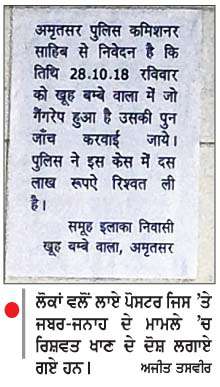 अमृतसर पुलिस कमिशनर
साहिब से निवेदन है कि
तिथि 28.10.18 रविवार
को खूह बम्बे वाला में जो
गैंगरेप हुआ है उसकी पुन
जाँच करवाई जाये।
पुलिस ने इस केस में दस
लाख रूपऐ रिश्वत ली
है।
समूह इलाका निवासी
खूह बम्बे वाला, अमृतसर
ਲੋਕਾਂ ਵਲੋਂ ਲਾਏ ਪੋਸਟਰ ਜਿਸ 'ਤੇ
ਜਬਰ-ਜਨਾਹ ਦੇ ਮਾਮਲੇ 'ਚ
ਰਿਸ਼ਵਤ ਖਾਣ ਦੇ ਦੋਸ਼ ਲਗਾਏ
ਗਏ ਹਨ। ਅਜੀਤ ਤਸਵੀਰ